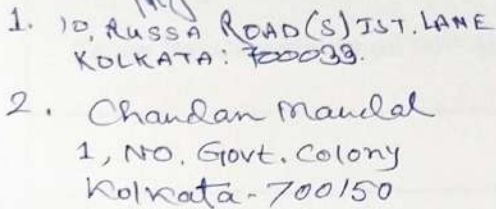 1. 10, RUSSA ROAD(S) IST. LANE
KOLKATA: 700033.
2. Chandan Mandal
1, NO. Govt. Colony
Kolkata - 700150